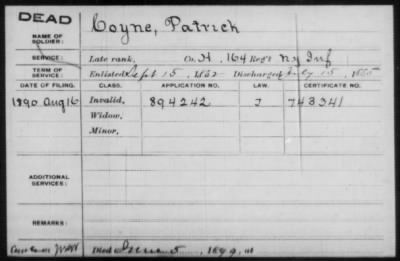 DEAD
NAME OF SOLDIER: Coyne, Patrick
SERVICE: Late rank, Co. H, 164 Reg't NY Inf
TERM OF SERVICE: Enlisted Sept 15, 1862 Discharged July 15, 1865
DATE OF FILING. CLASS. APPLICATION NO. LAW. CERTIFICATE NO.
1890 Aug 16 Invalid, 894242 J 743341
Widow,
Minor,
ADDITIONAL SERVICES:
REMARKS:
Died June 5, 1899, at